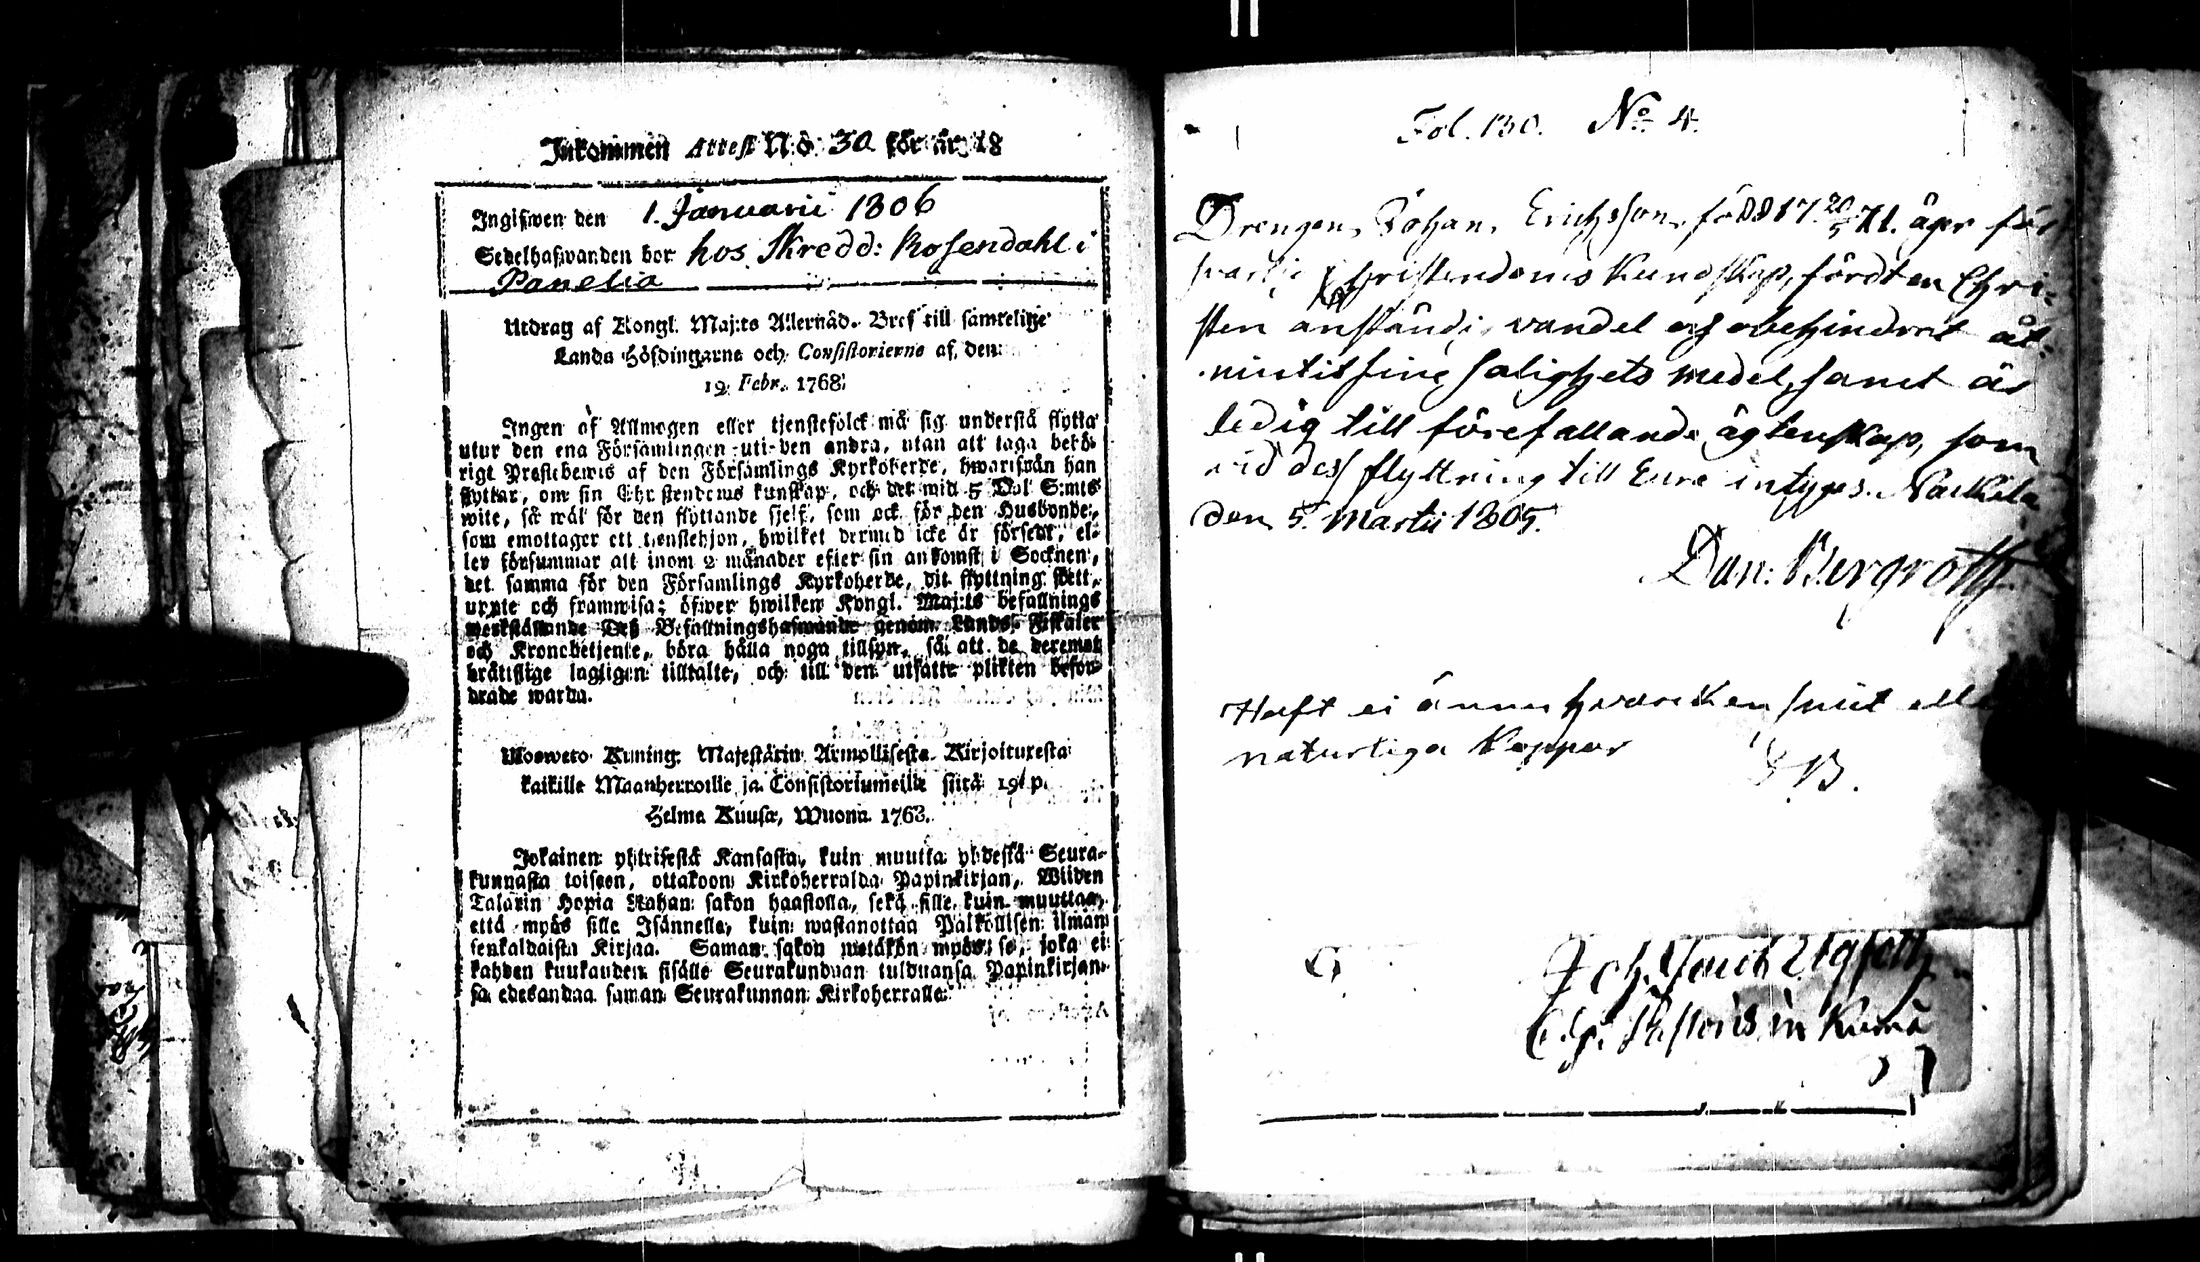 Inkommen Attest N:o 30 för år 18
Ingifwen den 1. Januarii 1806
Sedelhafwanden bor hos Skredd: Rosendahl i
Panelia
Utdrag af Kongl. Maj:ts Allernåd. Bref till samtelige
Lands Höfdingarne och Consistorierne af den
19 Febr. 1768.
Ingen af Allmogen eller tjenstefolck må sig understå flytta
utur den ena Församlingen uti den andra, utan att taga behö-
rigt Prestebewis af den Församlings Kyrkoherde, hwarifrån han
flyttar, om sin Christendoms kunskap, och det wid 5 Dal S:mts
wite, så wäl för den flyttande sjelf, som ock för den Husbonde,
som emottager ett tienstehjon, hwilket dermed icke är försedt, el-
ler försummar att inom 2 månader efter sin ankomst i Socknen,
det samma för den Församlings Kyrkoherde, dit flyttning skett,
uppte och framwisa; öfwer hwilken Kongl. Maj:ts befallnings
werkställande Deß Befallningshafwande genom Lands Fiskaler
och Kronobetjente, böra hålla noga tillsyn, så att de deremot
brättslige lagligen tilltalte, och till den utsatte plikten befor-
drade warda.
Ulosweto Kuning. Majestätin Armollisesta Kirjoituxesta
kaikille Maanherroille ja Consistoriumeille siitä 19 p.
Helme Kuusa, Wuonna 1768.
Jokainen yhteisestä Kansasta, kuin muutta yhdestä Seura-
kunnasta toiseen, ottakoon Kirkoherralda Papinkirjan, Wiiden
Talarin Hopia Rahan sakon haastolla, sekä sille kuin muuttaa,
että myös sille Isännelle, kuin wastanottaa Palkollisen ilman
senkaldaista Kirjaa. Saman sakon wetäkön myös se, joka ei
kahden kuukauden sisälle Seurakunduan tulduansa Papinkirjan-
sa edesandaa saman Seurakunnan Kirkoherralle.
Fol. 130. No 4.
Drengen Johan Erichsson, född 17 20/5 71. äger för
svarlig Christendoms kundskap, fördt en Chri-
sten anständig vandel och obehindrat åt-
niutit sine salighets medel, samt är
ledig till förefallande ägtenskap, som
vid dess flyttning till Eura intyges. Nackila
den 5. Martii 1805.
Dan: Bergroth
Haft ei ännu hvarcken smit elle
naturliga Koppor
DB.
Joh.
Pastoris in Kumo